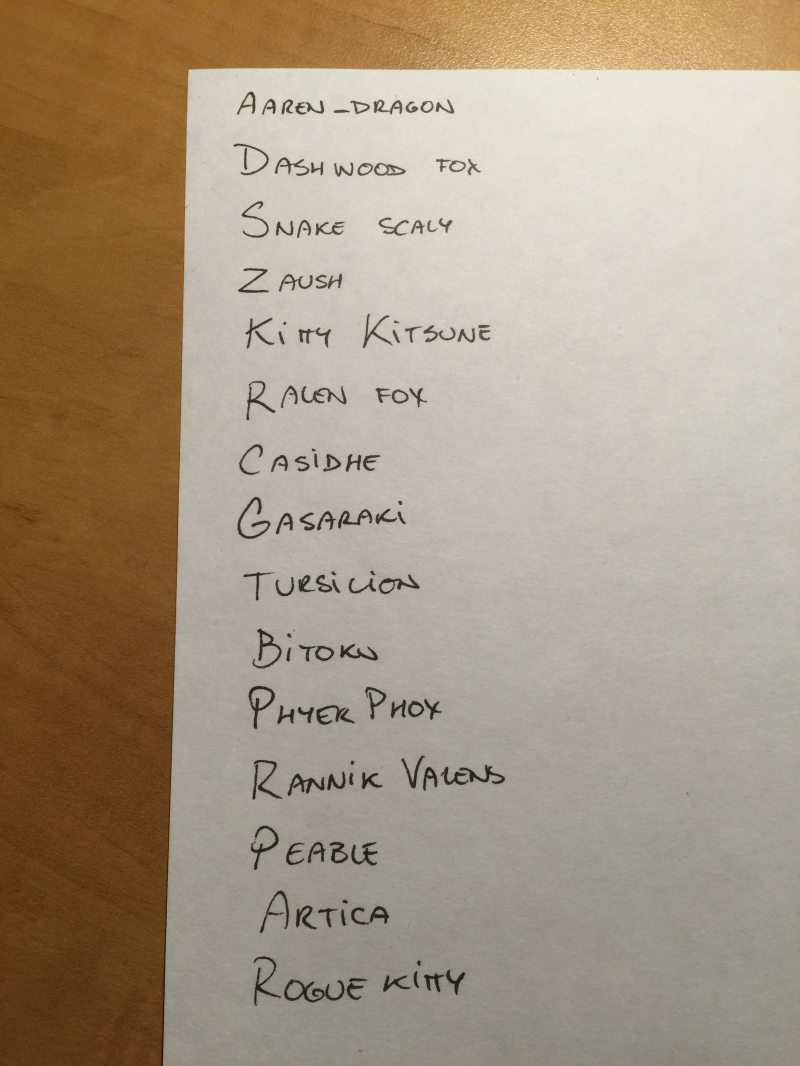 Aaren_dragon
Dashwood fox
Snake scaly
Zaush
Kitty Kitsune
Ralen fox
Casidhe
Gasaraki
Tursicion
Bitoku
Phyer Phox
Rannik Valens
Peable
Artica
Rogue Kitty